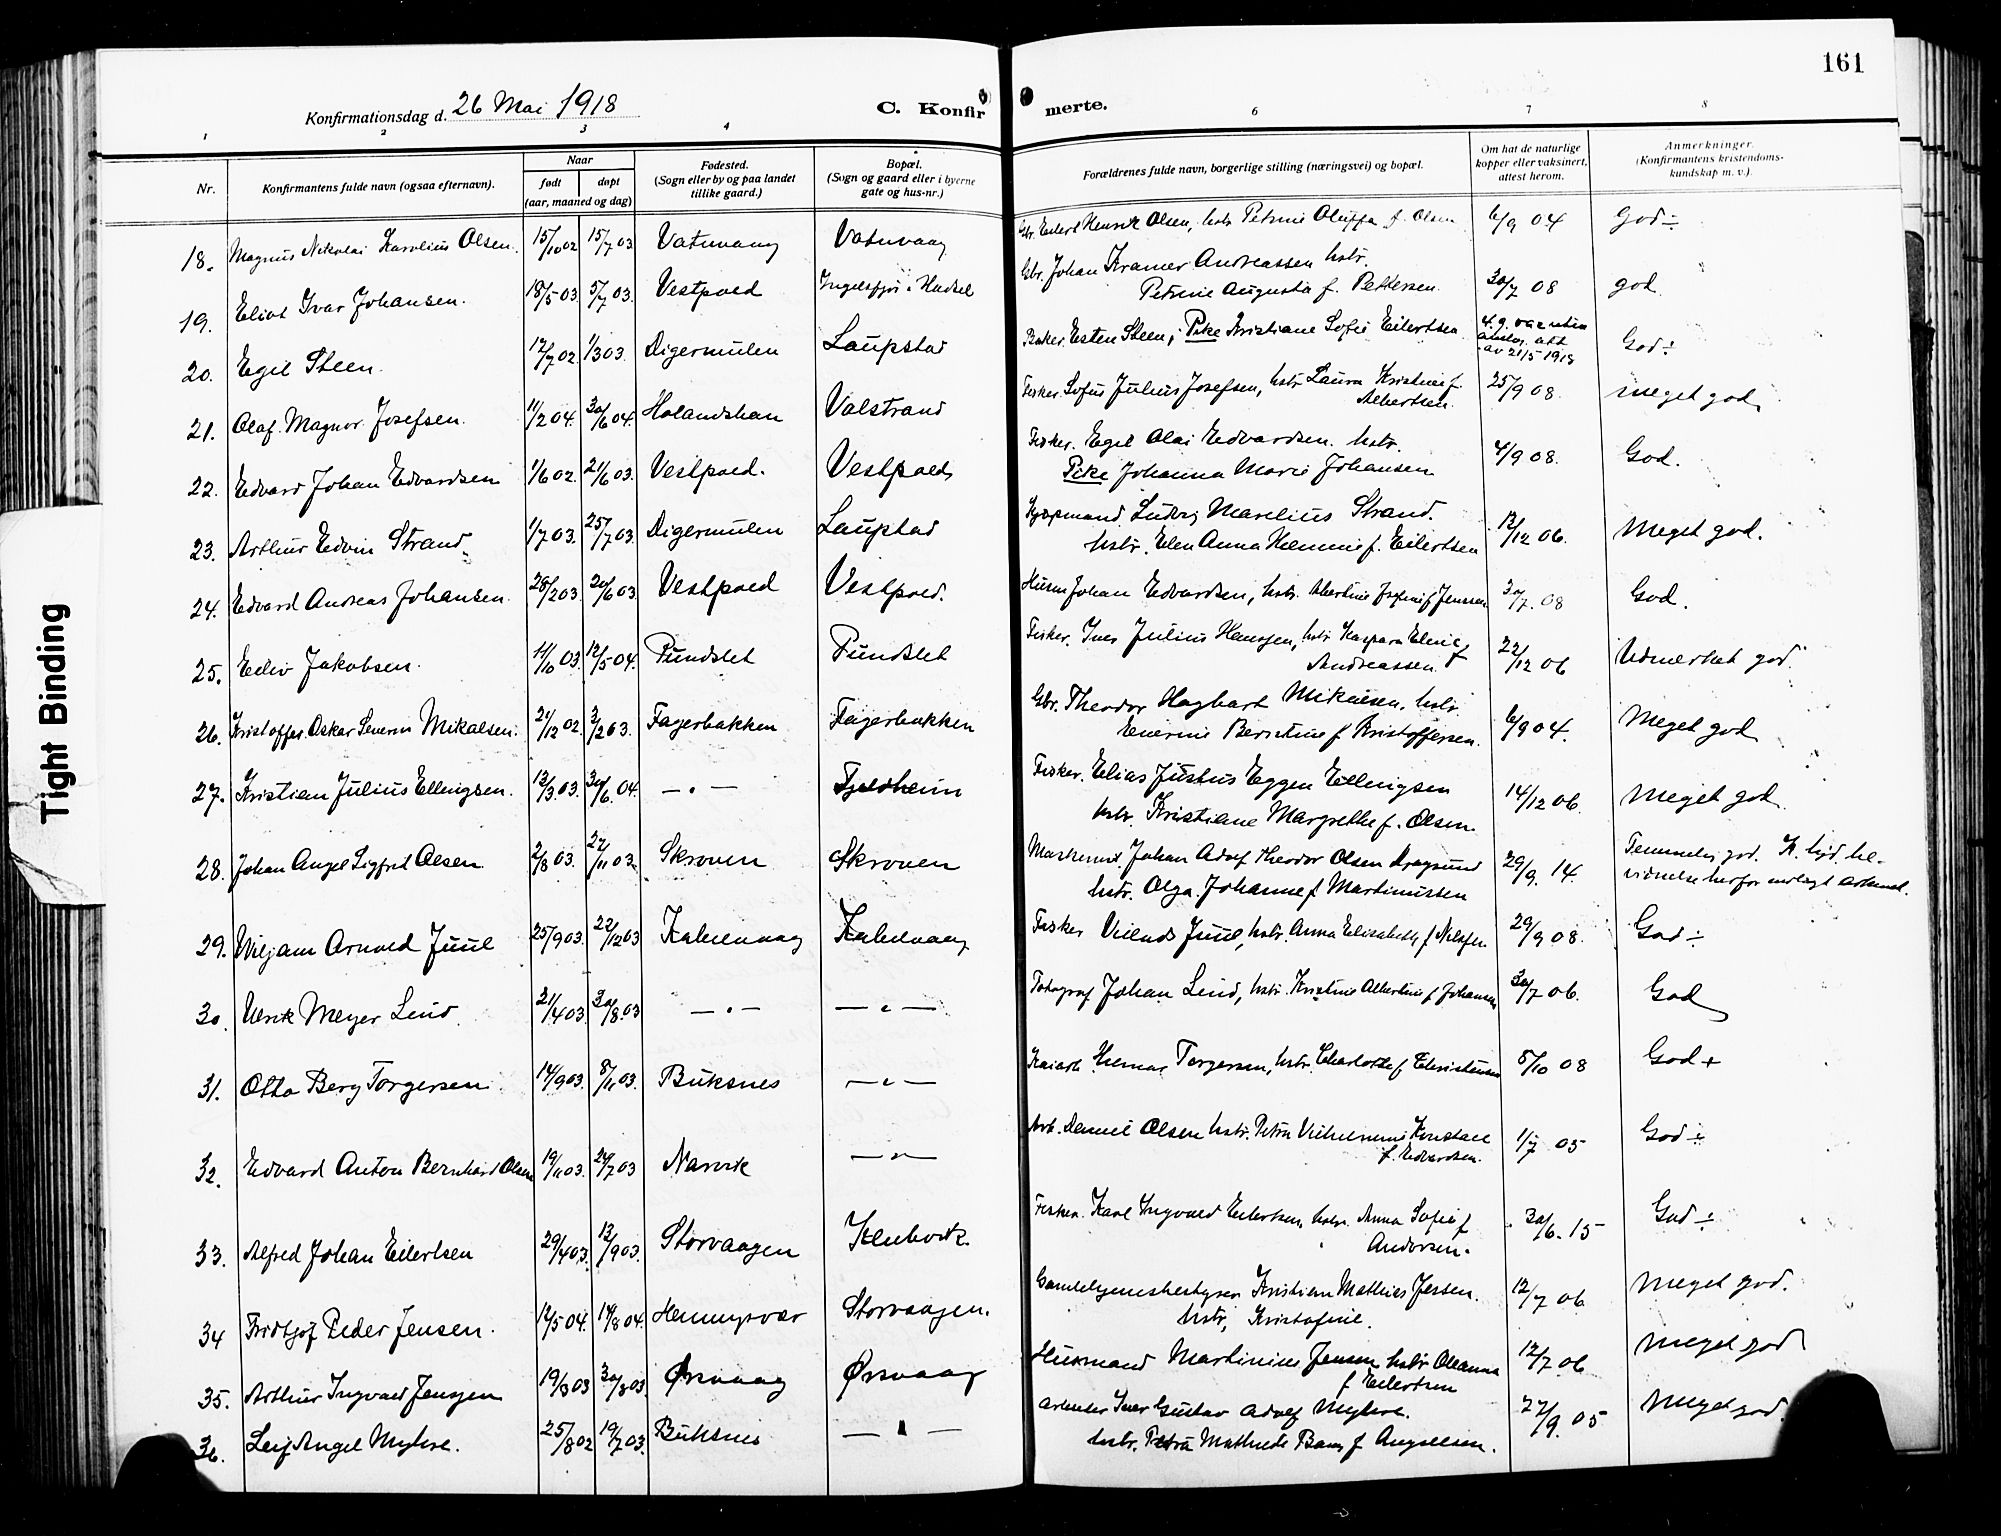 161
Konfirmationsdag d. 26 Mai 1918
C. Konfirmerte.
1 2 3 4 6 7 8
Nr.
Konfirmantens fulde navn (ogsaa efternavn).
Naar
født
døpt
(aar, maaned og dag)
Fødested.
(Sogn eller by og paa landet
tillike gaard.)
Bopæl.
(Sogn og gaard eller i byerne
gate og hus-nr.)
Forældrenes fulde navn, borgerlige stilling (næringsvei) og bopæl.
Om hat de naturlige
kopper eller vaksinert,
attest herom.
Anmerkninger.
(Konfirmantens kristendoms-
kundskap m. v.).
18. Magnus Nikolai Karolius Olsen. 15/10 02 15/7 03 Vatnvaag Vatnvaag Gbr. Eilert Henrik Olsen, hstr. Petrine Oluffa f. Olsen 6/9 04 God ÷
19. Eliot Ivar Johansen. 18/5 03. 5/7 03. Vestpold Ingelsfjor i Hadsel Gbr. Johan Kramer Andreassen hstr.
Petrine Augusta f. Pettersen. 30/7 08 god
20. Egil Steen. 12/7 02. 1/3 03. Digermulen Laupstad Baker. Esten Steen, Pike Kristiane Sofie Eilertsen 4. g. vac. uten
anslag. att
av 21/5 1918 God ÷
21. Olaf Magnor Josefsen. 11/2 04. 30/6 04. Holandshan Valstrand Fisker. Sofus Julius Josefsen, hstr Laura Kristine f.
Albertsen. 25/9 08. Meget god
22. Edvard Johan Edvardsen 1/6 02. 21/6 03. Vestpold. Vestpold Fisker. Egil Olai Edvardsen. hstr.
Pike Johanna Marie Johansen 4/9 08. God.
23. Arthur Edvin Strand. 1/7 03. 25/7 03. Digermulen Laupstad Kjøpmand Ludvig Marelius Strand.
hstr. Elen Anna Hemmie f. Eilertsen 12/12 06. Meget god.
24. Edvard Andreas Johansen. 28/2 03. 20/6 03. Vestpold Vestpold. Husm Johan Edvardsen, hstr. Albertine Josefine f Jenssen 30/7. 08 God.
25. Eiliv Jakobsen. 11/10 03. 12/5 04. Pundslet Pundslet Fisker. Iver Julius Hanssen, hstr Kaspara Eline f
Andreassen. 22/12 06 Udmerket god.
26. Kristoffer Oskar Severin Mikalsen. 21/12 02. 3/2 03. Fagerbakken Fagerbakken Gbr. Theodor Hagbart Mikalsen, hstr.
Enerine Berntine f Kristoffersen. 6/9 04. Meget god
27. Kristian Julius Ellingsen. 13/3. 03. 30/6. 04. — " — Fjeldheim Fisker. Elias Justus Eggen Ellingsen
hstr. Kristiane Margrethe f. Olsen. 14/12 06. Meget god.
28. Johan Angel Sigfrid Olsen 2/8 03. 22/11 03. Skroven Skroven Maskinist Johan Adolf Theodor Olsen Kragsund
hstr. Olga Johanne f Martinussen 29/9. 14. Temmelig god.
29. Wiljam Arnold Juul 25/9 03. 22/12 03 Kabelvaag Kabelvaag Fisker Vilends Juul, hstr. Anna Elisabeth, f Nilssen 29/9 08. God ÷
30. Ulrik Meyer Lind 21/4 03. 30/8. 03 — " — — " — Fotograf Johan Lind, hstr. Kristine Albertine f Johansen 30/7 06. God
31. Otto Berg Torgersen 14/9 03. 8/11 03. Buksnes — " — Kaiarb. Hemar Torgersen, hstr. Charlotte f Christensen 5/10 08 God +
32. Edvard Anton Bernhard Olsen 19/11 03. 24/7 03 Narvik — " — Arb. Daniel Olsen hstr. Petra Vilhelmine Konstace
f. Edvardsen. 1/7 05 God ÷
33. Alfred Johan Eilertsen 29/4 03. 13/9 03. Storvaagen Kleubvik. Fisker. Karl Ingvald Eilertsen, hstr. Anna Sofie f
Andersen. 30/6. 15 God ÷
34 Fridtjof Peder Jensen. 12/5 04. 14/8 04. Henningsvær Storvaagen. Gamlehjemsbestyrer Kristian Mathias Jensen.
hstr. Kristofine. 12/7 06 Meget god.
35. Arthur Ingvald Jenssen 19/3 03 30/8 03. Ørsvaag Ørsvaag Husmand Martinius Jensen hstr Oleanna
f Eilertsen 12/7. 06 Meget god
36. Leif Angel Myhre. 25/8 02 19/7 03. Buksnes — " — Arbeider Iver Gustav Adolf Myhre.
hstr. Petra Mathilde Bang f Angelsen. 27/9. 05 Meget god.
Tight Binding